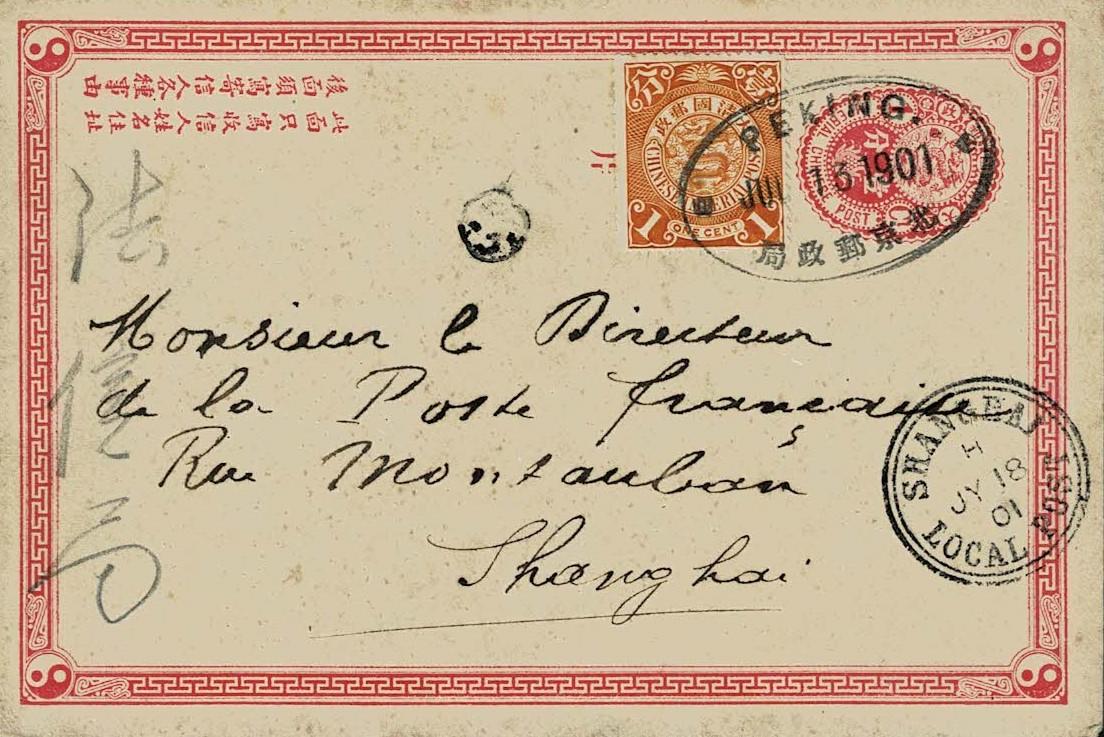 後面須寫寄信人各種事由
此面只寫收信人姓名住址
片
壹分
大清國郵政
CHINESE IMPERIAL POST
1 ONE CENT 1
PEKING.
JUL 13 1901
北京郵政局
分
POST
法信局
Monsieur le Directeur
de la Poste française
Rue Montauban
Shanghai
SHANGHAI
H
JY 18
01
LOCAL POST